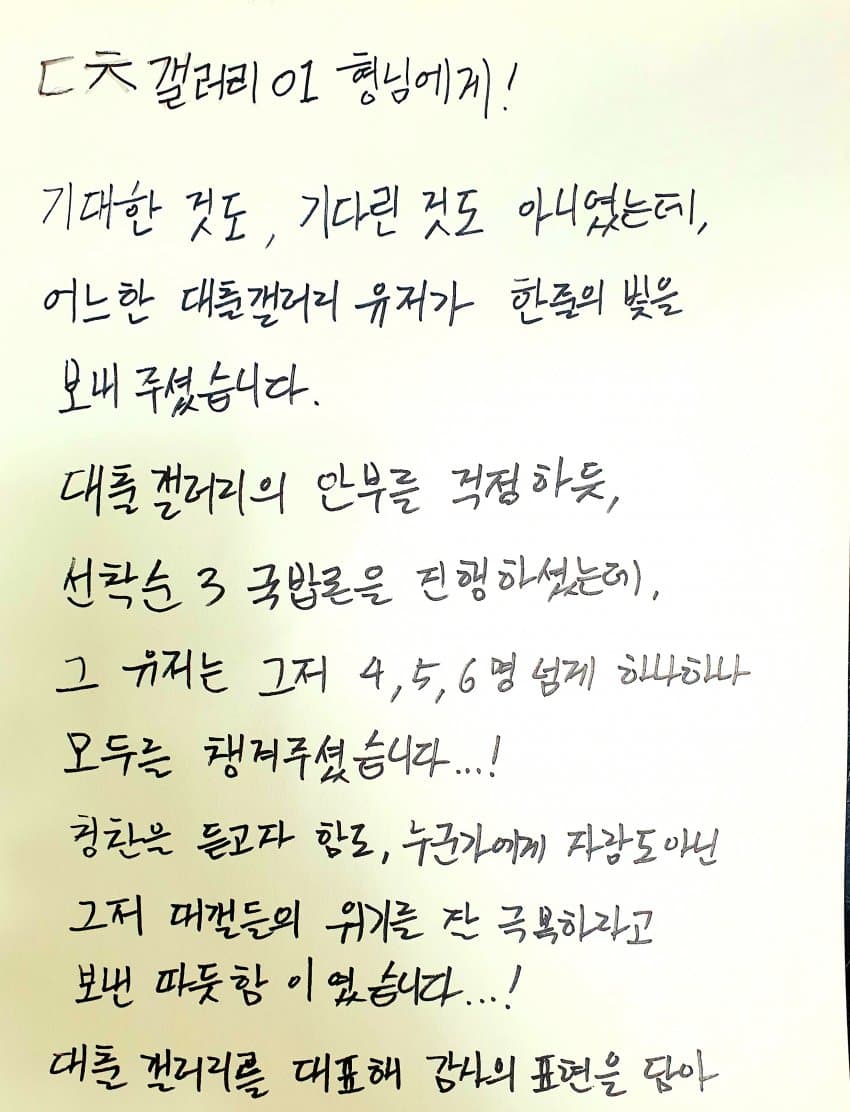 ㄷㅊ 갤러리 01 형님에게!
기대한 것도, 기다린 것도 아니였는데,
어느한 대출갤러리 유저가 한줄의 빛을
보내 주셨습니다.
대출갤러리의 안부를 걱정하듯,
선착순 3 국밥론을 진행하셨는데,
그 유저는 그저 4,5,6명 넘게 하나하나
모두를 챙겨주셨습니다...!
칭찬을 듣고자 함도, 누군가에게 자랑도아닌
그저 대갤들의 위기를 잔 극복하라고
보낸 따듯함 이였습니다...!
대출 갤러리를 대표해 감사의 표현을 담아